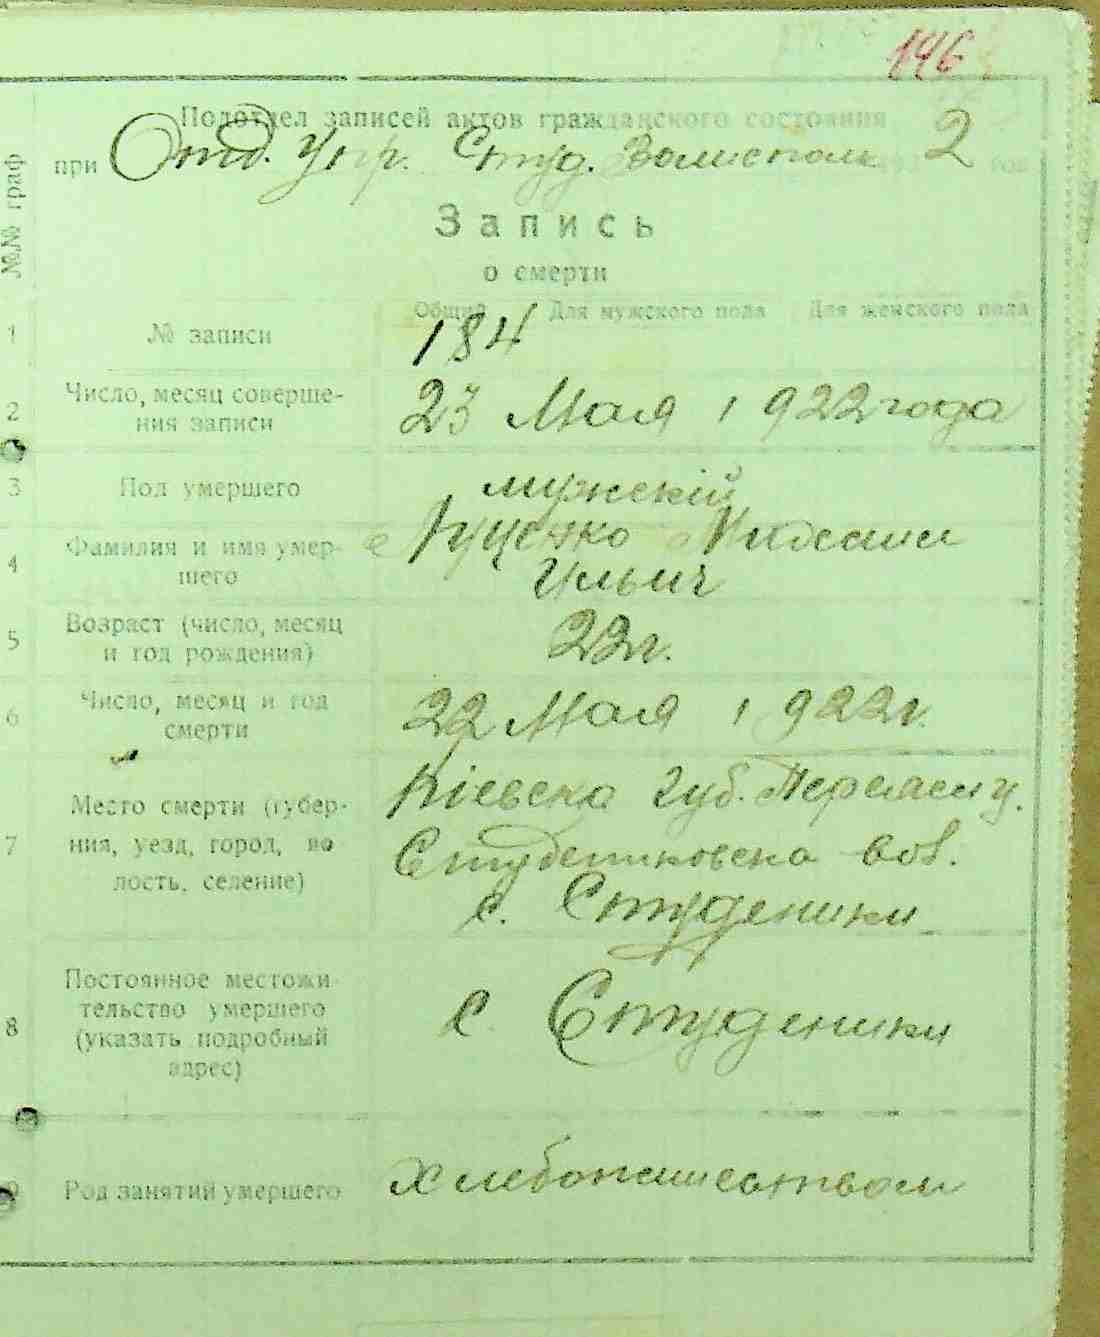 146
Подотдел записей актов гражданского состояния
при Отд. Упр. Студ. Волисполк 2 год
Запись
о смерти
№№ граф
Общий Для мужского пола Для женского пола
1 № записи 184
2 Число, месяц соверше-
ния записи 23 Мая 1922 года
3 Пол умершего мужскій
4 Фамилия и имя умер-
шего Луценко
Ильич
5 Возраст (число, месяц
и год рождения) 22 г.
6 Число, месяц и год
смерти 22 Мая 1922 г.
7 Место смерти (губер-
ния, уезд, город, во
лость, селение)
Кіевска губ. Переясл у.
Студениковска вол.
с. Студеники
8 Постоянное местожи
тельство умершего
(указать подробный
адрес) с. Студеники
9 Род занятий умершего хлебопашеством